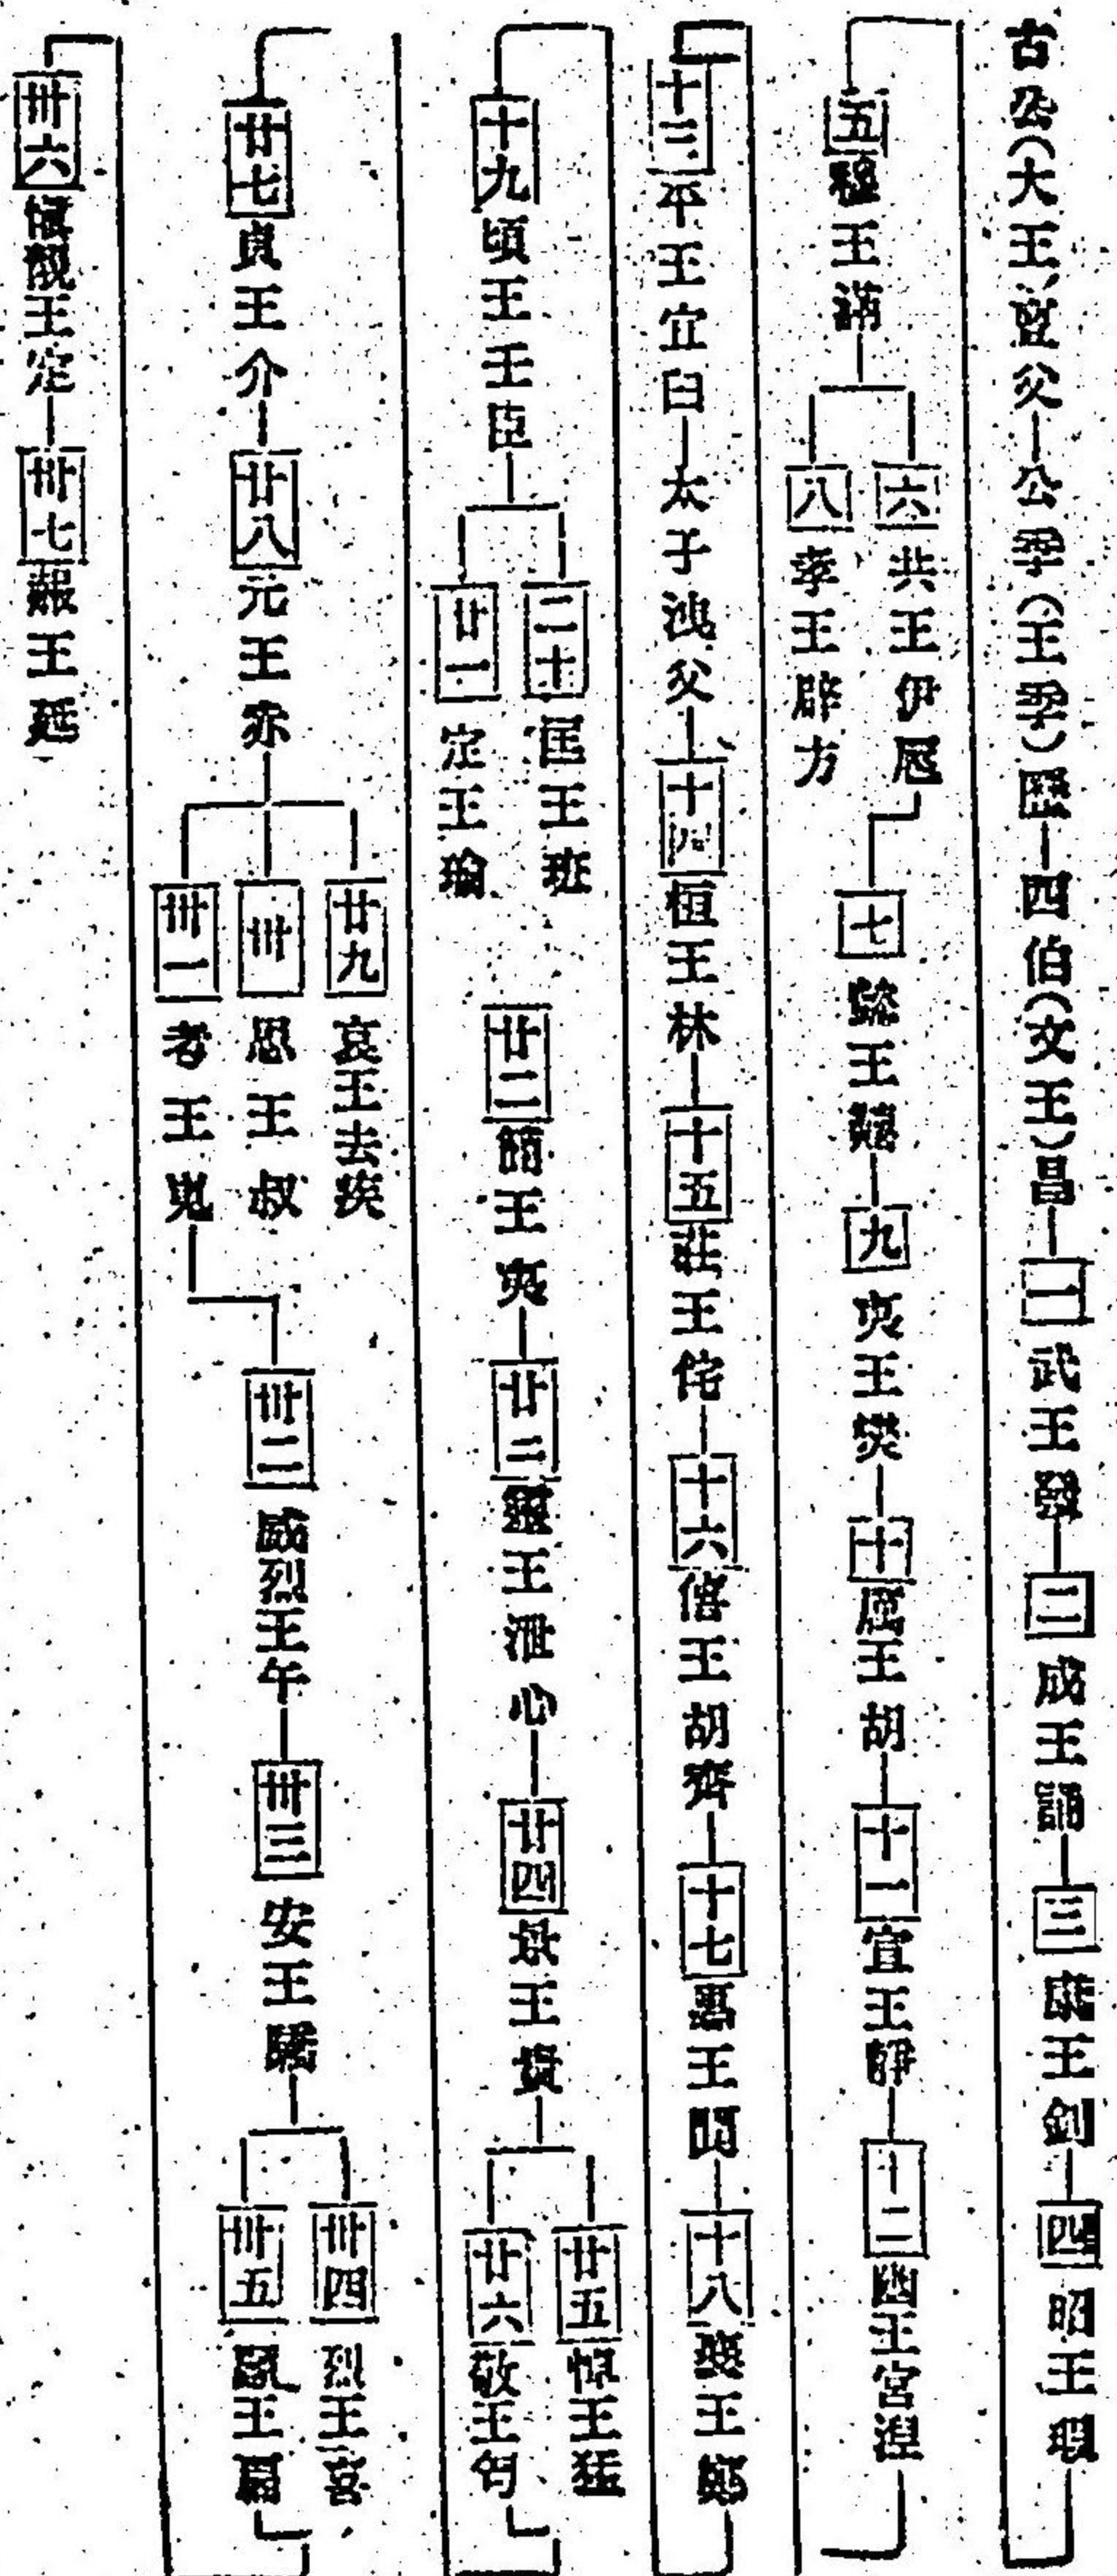 古公(大王)亶父—公季(王季)歷—四伯(文王)昌—一武王發—二成王誦—三康王釗—四昭王瑕
五穆王滿
六共王伊扈
八孝王辟方
七懿王囏—九夷王燮—十厲王胡—十一宣王靜—十二幽王宮湼
十三平王宜臼—太子洩父—十四桓王林—十五莊王佗—十六僖王胡齊—十七惠王閬—十八襄王鄭
十九頃王壬臣
二十匡王班
廿一定王瑜
廿二簡王夷—廿三靈王泄心—廿四景王貴
廿五悼王猛
廿六敬王匄
廿七貞王介—廿八元王赤
廿九哀王去疾
卅思王叔
卅一考王嵬
卅二威烈王午—卅三安王驕
卅四烈王喜
卅五顯王扁
卅六慎靚王定—卅七赧王延